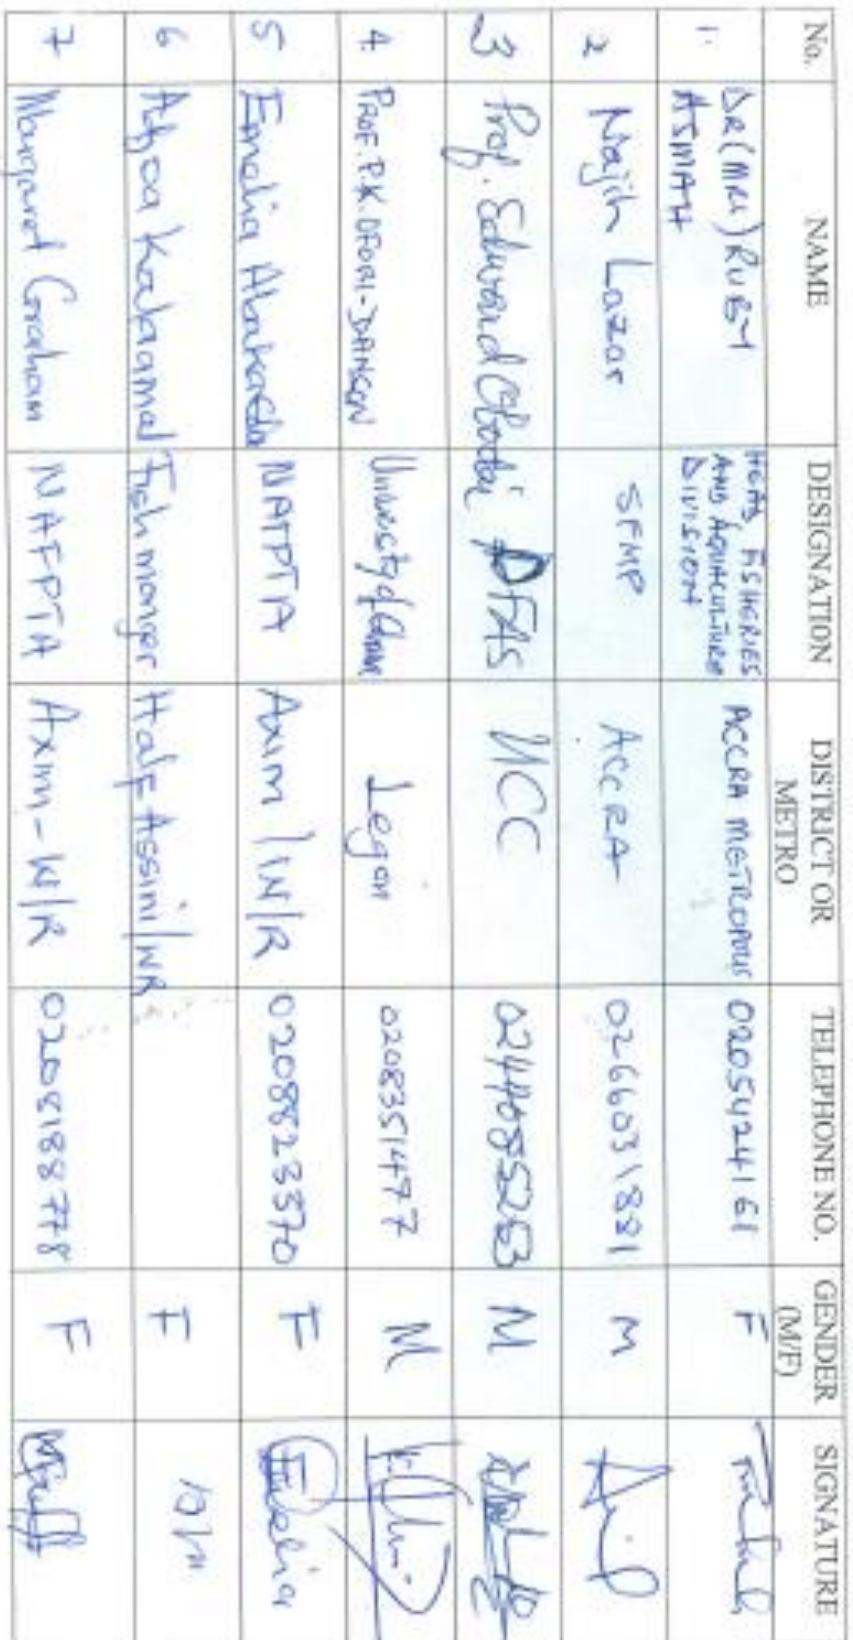 No. NAME DESIGNATION DISTRICT OR METRO TELEPHONE NO. GENDER (M/F) SIGNATURE
1. DR (MRS) RUBY ASMAH HEAD, FISHERIES AND AQUACULTURE DIVISION ACCRA METROPOLIS 0205424161 F
2 Najih Lazar SFMP ACCRA 0266031881 M
3 Prof. Edward Obodai DFAS UCC 0244085253 M
4. PROF. P.K. OFORI-DANSON University of Ghana Legon 0208351477 M
5 Emelia Abakah NAFPTA Axim/W/R 0208823570 F Emelia
6 Fishmonger Half Assini/WR F
7 Margaret Graham NAFPTA Axim-W/R 0208188778 F